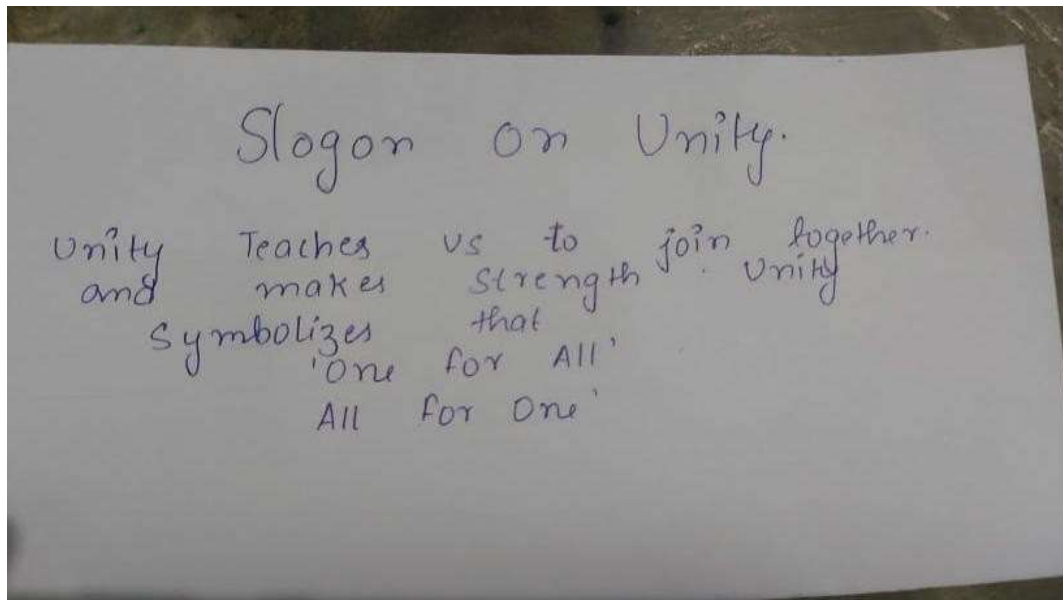 Slogon on Unity.
Unity Teaches us to join together.
and makes strength. Unity
symbolizes that
'One for All'
All for One'